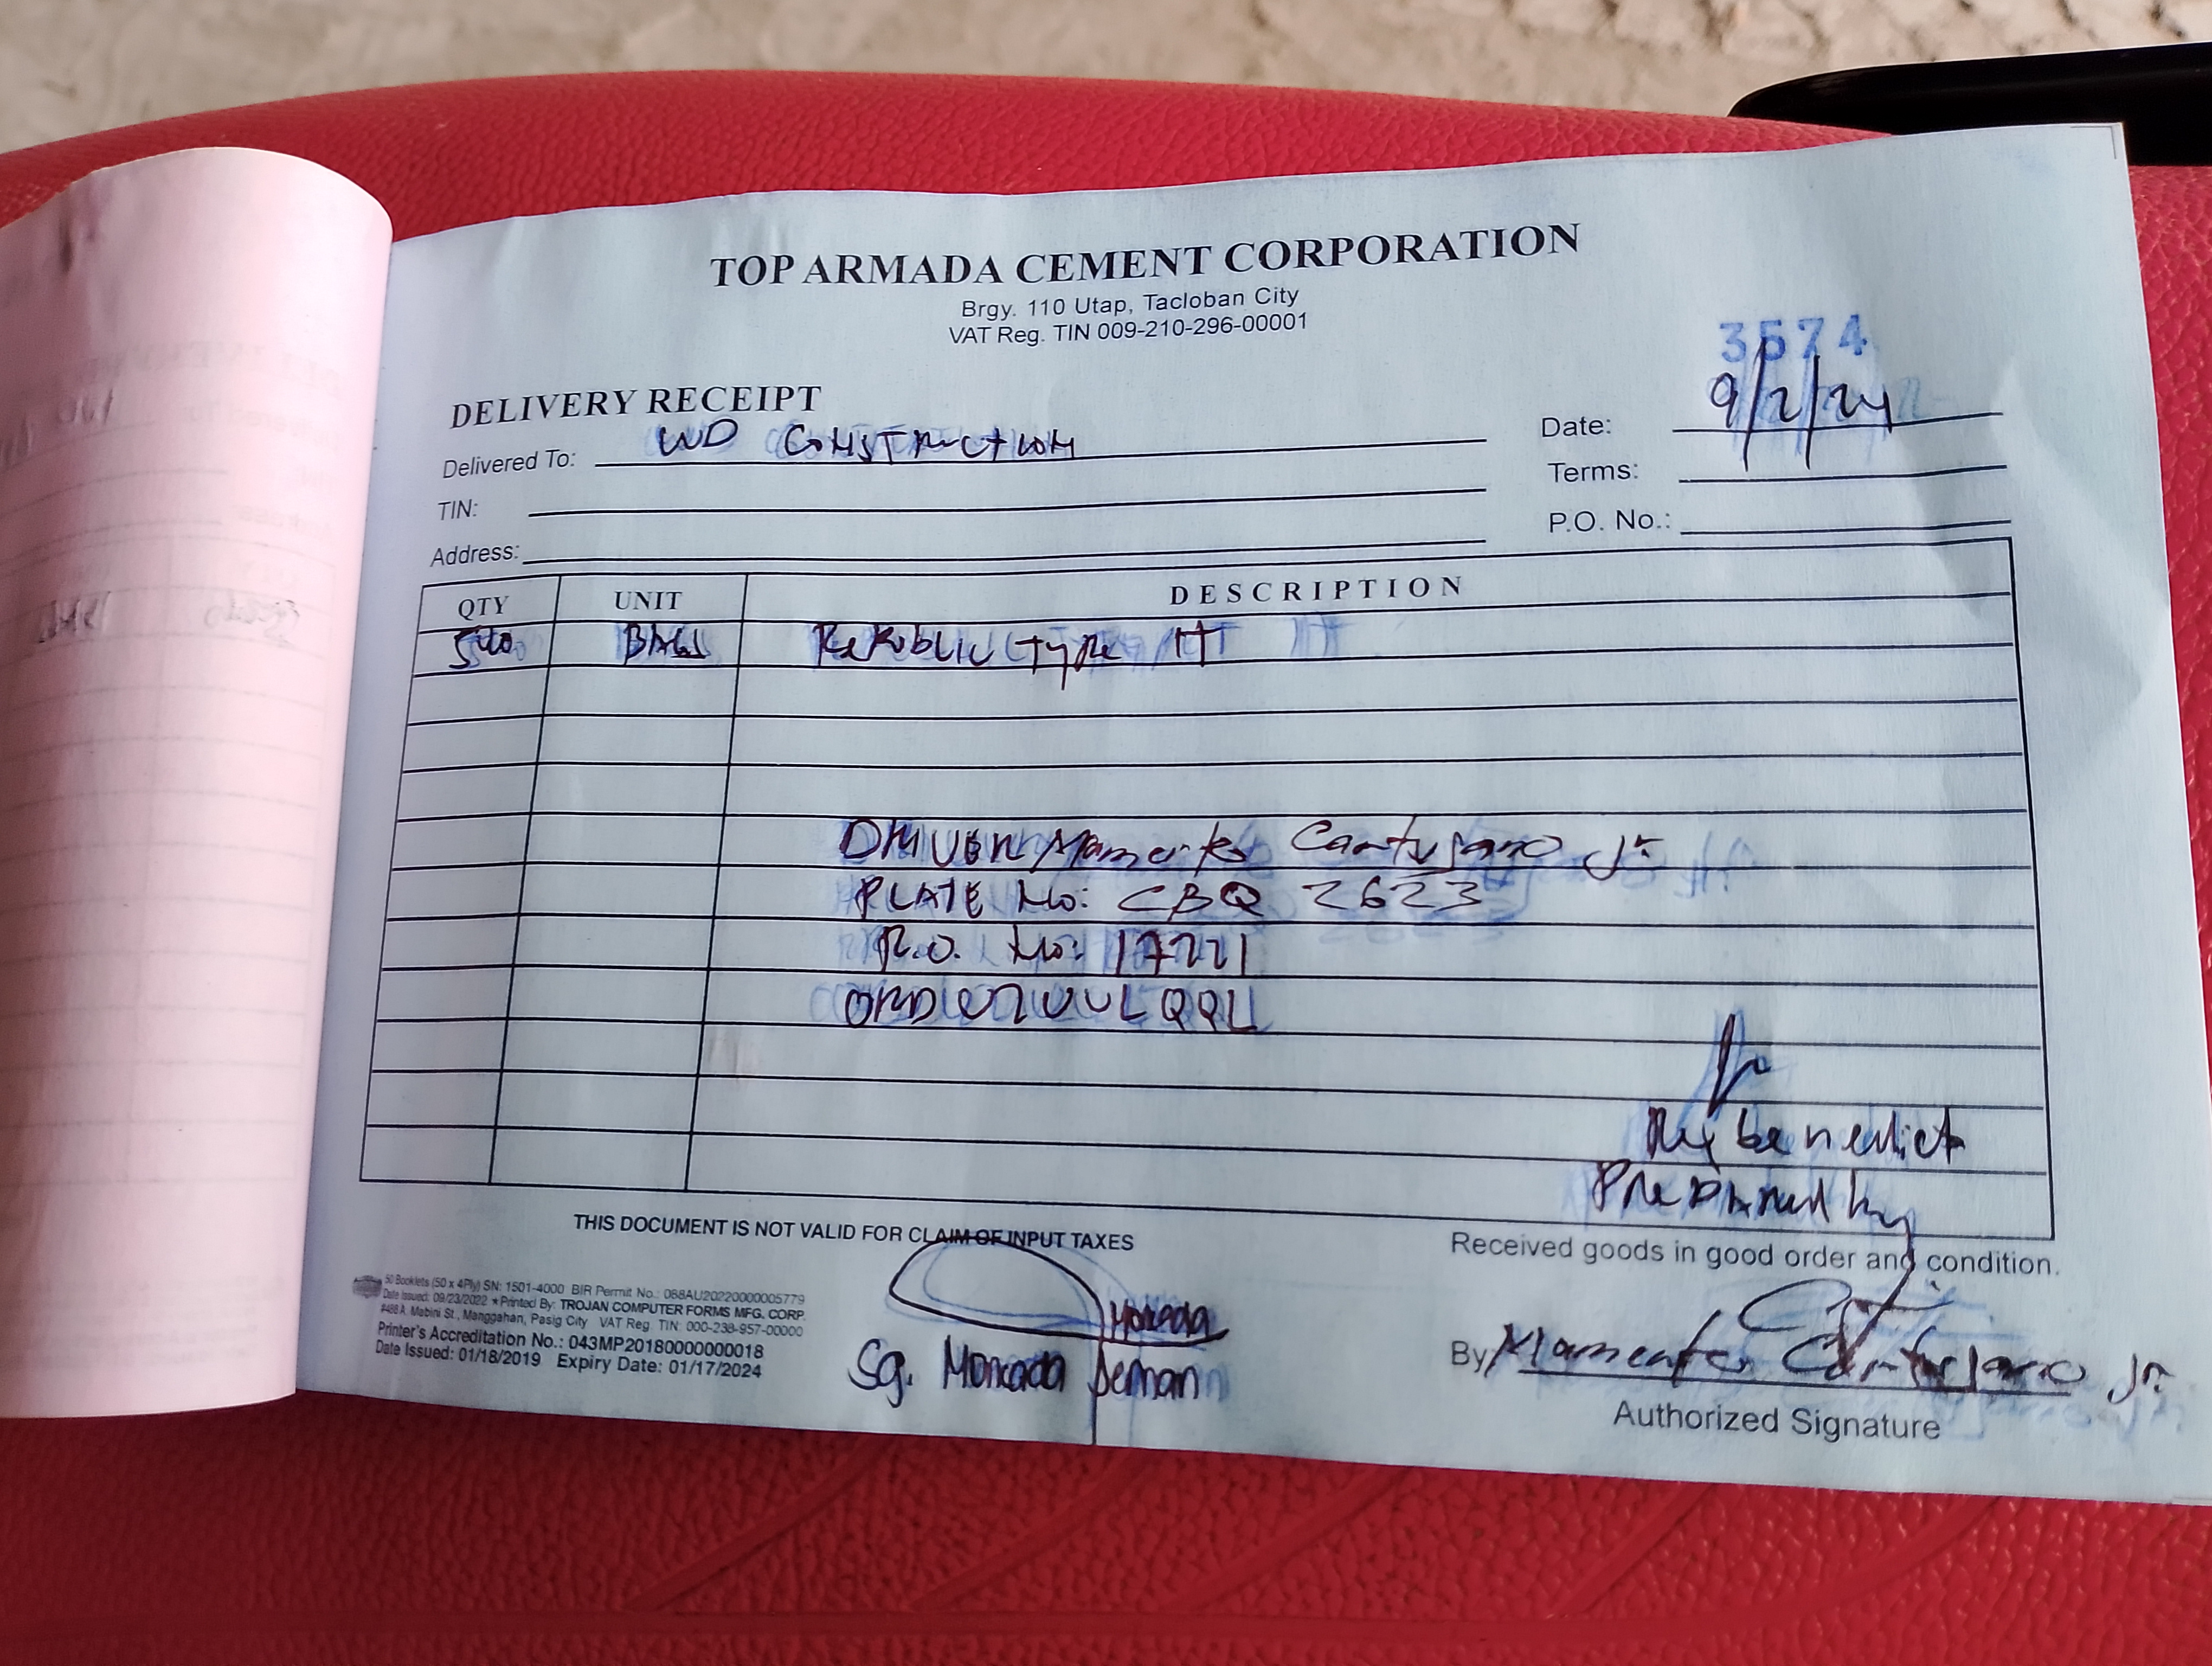 TOP ARMADA CEMENT CORPORATION
Brgy. 110 Utap, Tacloban City
VAT Reg. TIN 009-210-296-00001
3574
DELIVERY RECEIPT
Date: 9/2/24
Delivered To: WD CONSTRUCTION
Terms:
TIN:
P.O. No.:
Address:
QTY UNIT DESCRIPTION
540 BAGS Republic Type
DRIVER Mamerto Jr.
PLATE No: CBQ 2623
No: 17221
benedict
Prepared by
THIS DOCUMENT IS NOT VALID FOR CLAIM OF INPUT TAXES
Received goods in good order and condition.
50 Booklets (50 x 4Ply) SN: 1501-4000 BIR Permit No.: 088AU20220000005779
Date Issued: 09/23/2022 ★Printed By: TROJAN COMPUTER FORMS MFG. CORP.
#488 A. Mabini St., Manggahan, Pasig City VAT Reg. TIN: 000-238-957-00000
Printer's Accreditation No.: 043MP20180000000018
Date Issued: 01/18/2019 Expiry Date: 01/17/2024
Moncada
Sg. Moncada
By Mamerto Jr.
Authorized Signature